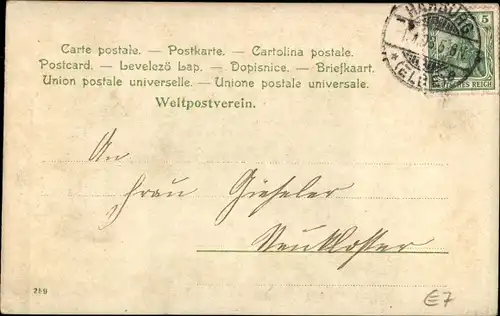 Carte postale. — Postkarte. — Cartolina postale.
Postcard. — Levelező Lap. — Dopisnice. — Briefkaart.
Union postale universelle. — Unione postale universale.
Weltpostverein.
HARBURG
(ELBE)
5
REICH
An
Frau Gieseler
Neukloster
289
€7